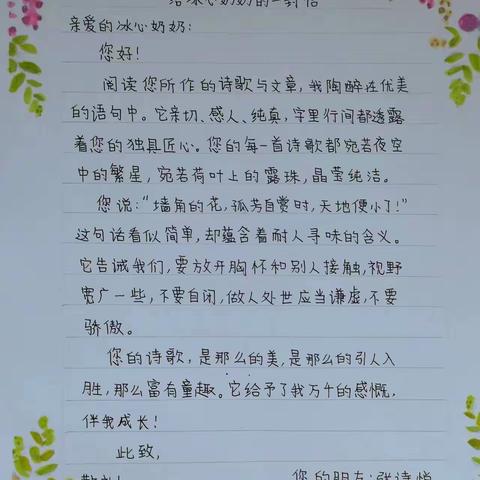 给冰心奶奶的一封信
亲爱的冰心奶奶:
您好!
阅读您所作的诗歌与文章,我陶醉在优美
的语句中。它亲切、感人、纯真,字里行间都透露
着您的独具匠心。您的每一首诗歌都宛若夜空
中的繁星,宛若荷叶上的露珠,晶莹纯洁。
您说:“墙角的花,孤芳自赏时,天地便小了!”
这句话看似简单,却蕴含着耐人寻味的含义。
它告诫我们,要放开胸怀和别人接触,视野
宽广一些,不要自闭,做人处世应当谦虚,不要
骄傲。
您的诗歌,是那么的美,是那么的引人入
胜,那么富有童趣。它给予了我万千的感慨,
伴我成长!
此致,
敬礼!
您的朋友:张诗悦